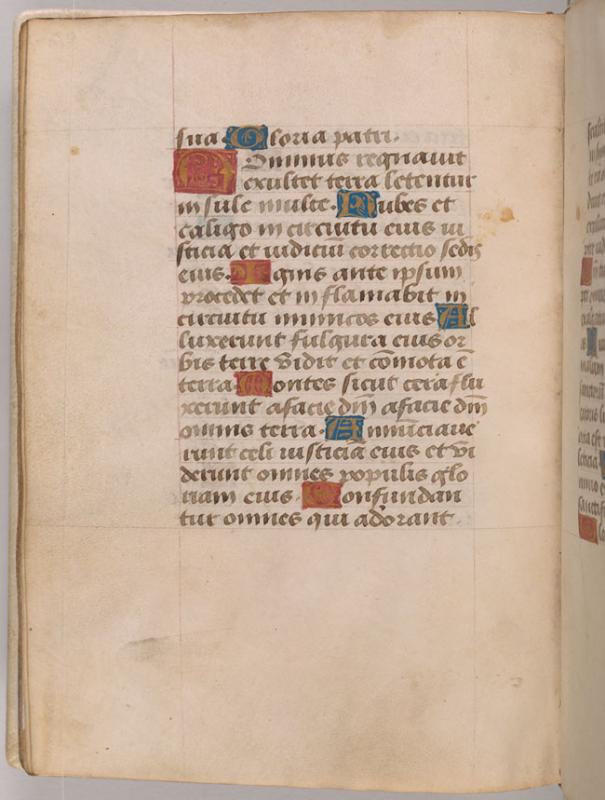 sua Gloria patri.
Dominus regnavit
exultet terra letentur
insule multe. Nubes et
caligo in circuitu eius iu
sticia et iudiciū correctio sedis
eius. Ignis ante ipsum
procedet et inflamabit in
circuitu inimicos eius Al
luxerunt fulgura eius or
bis terre vidit et cōmota ē
terra. Montes sicut cera flu
xerunt a facie dm̄ a facie dm̄
omnis terra. Annunciave
runt celi iusticiā eius et vi
derunt omnes populis glo
riam eius. Confundan
tur omnes qui adorant.